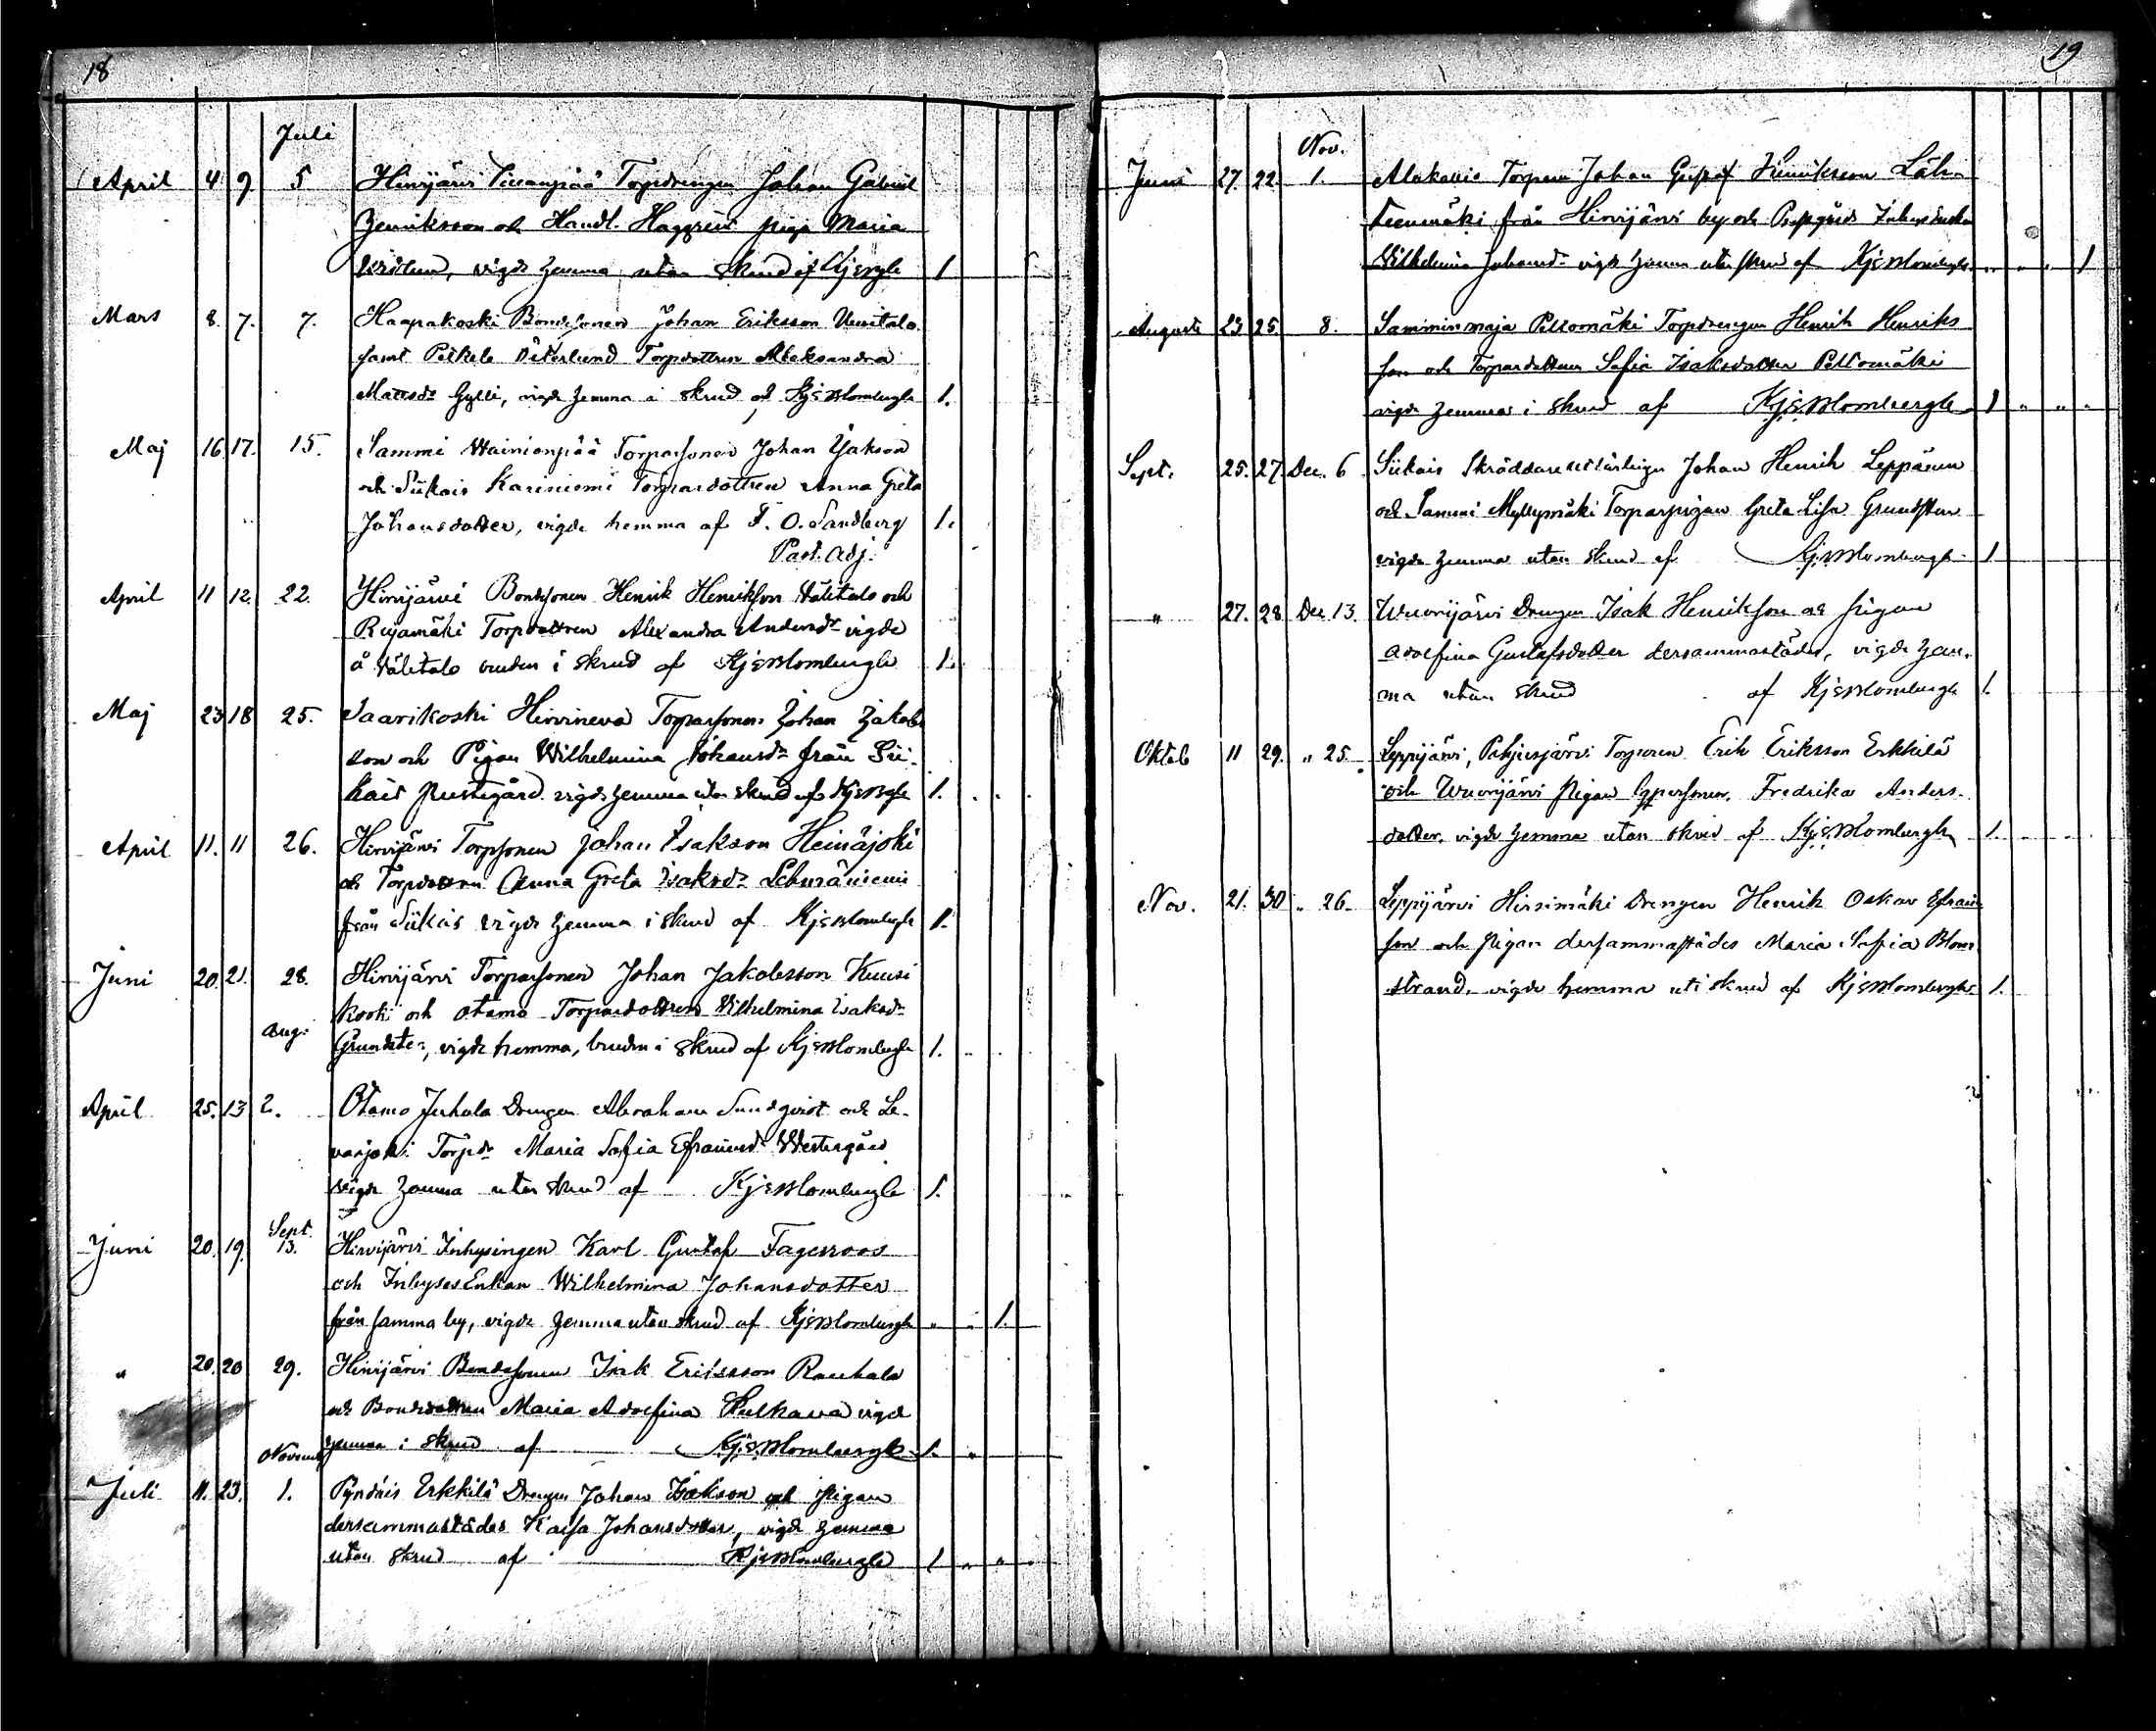 18
Juli
April 4 9. 5 Hirvijärvi Torpdrengen Johan Gabriel
Henriksson och Handl. Haggréns piga Maria
vigde hemma utan skrud af 1
Mars 8. 7. 7. Haapakoski Bondsonen Johan Eriksson Uusitalo
samt Peltola Österlund Torpdottren Aleksandra
Mattsdr Gylli, vigde hemma i skrud af KjEBlombergh 1.
Maj 16 17. 15. Sammi Wainionpää Torparsonen Johan
och Siikais Kariniemi Torpardottren Anna Greta
Johansdotter, vigde hemma af F. O. Sandberg 1.
Past. Adj.
April 11 12. 22. Hirvijärvi Bondsonen Henrik Henriksson Välitalo och
Torpdottren Alexandra Andersdr vigde
å Välitalo bruden i skrud af KjEBlombergh 1.
Maj 23 18 25. Saarikoski Hirvineva Torparsonen Johan Jakobs
son och Pigan Wilhelmina Johansdr från Sii-
kais Prestgård vigde hemma utan skrud af KjEBgh 1.
April 11. 11 26. Hirvijärvi Torpsonen Johan Isakson Heinäjoki
och Torpdottren Anna Greta Isaksdr Lehmäniemi
från Siikais vigde hemma i skrud af KjEBlombergh 1.
Juni 20. 21. 28. Hirvijärvi Torparsonen Johan Jakobsson Kuusi
koski och Otamo Torpardottren Wilhelmina Isaksdr
Aug. Grundsten, vigde hemma, bruden i skrud af KjEBlombergh 1.
April 25. 13 2. Otamo Juhala Drengen Abraham Sundqvist och Le-
vasjoki Torpdr Maria Sofia Efraimsdr Westergård
vigde hemma utan skrud af KjEBlombergh 1.
Sept.
Juni 20. 19. 13. Hirvijärvi Inhysingen Karl Gustaf Fagerroos
och InhysesEnkan Wilhelmina Johansdotter
från samma by, vigde hemma utan skrud af KjEBlombergh " " 1.
" 20. 20 29. Hirvijärvi Bondesonen Isak Eriksson Rauhala
och Bondedottren Maria Adolfina vigde
Novemb hemma i skrud af KjEBlombergh 1. "
Juli 11. 23. 1. Erkkilä Drengen Johan Isakson och pigan
dersammastädes Kaisa Johansdotter, vigde hemma
utan skrud af KjEBlombergh 1 " "
19
Nov.
Juni 27. 22. 1. Torparen Johan Gustaf Henriksson Läh-
teenmäki från Hirvijärvi by och
Wilhelmina Johansdr vigde hemma utan skrud af KjEBlombergh " " " 1
Augusti 23 25. 8. Samminmaja Peltomäki Torpdrengen Henrik Henriks
son och Torpardottren Sofia Isaksdotter Peltomäki
vigde hemma i skrud af KjEBlombergh 1 " " "
Sept. 25. 27. Dec. 6 Siikais Johan Henrik Leppänen
och Sammi Myllymäki Torparpigan Greta Lisa Grundsten
vigde hemma utan skrud af KjEBlombergh 1
" 27. 28 Dec 13. Wuorijärvi Drengen Isak Henriksson och pigan
Adolfina Gustafsdotter dersammastädes, vigde hem-
ma utan skrud af KjEBlombergh 1.
Oktob 11 29. " 25. Leppijärvi, Torparen Erik Eriksson Erkkilä
och Wuorijärvi Pigan Fredrika Anders-
dotter, vigde hemma utan skrud af KjEBlombergh 1.
Nov. 21. 30 " 26. Leppijärvi Hirsimäki Drengen Henrik Oskar Efraim
son och Pigan dersammastädes Maria Sofia Blom
strand, vigde hemma uti skrud af KjEBlombergh 1.